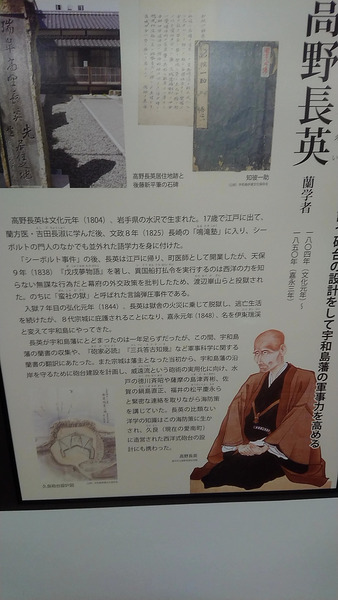 高野長英
蘭学者
一八〇四年（文化元年）～
一八五〇年（嘉永三年）
砲台の設計をして宇和島藩の軍事力を高める
高野長英居住地跡と
後藤新平筆の石碑
知彼一助
高野長英は文化元年（1804）、岩手県の水沢で生まれた。17歳で江戸に出て、
蘭方医・吉田長淑に学んだ後、文政8年（1825）長崎の「鳴滝塾」に入り、シー
ボルトの門人のなかでも並外れた語学力を身に付けた。
「シーボルト事件」の後、長英は江戸に帰り、町医師として開業したが、天保
9年（1838）『戊戌夢物語』を著し、異国船打払令を実行するのは西洋の力を知
らない無謀な行為だと幕府の外交政策を批判したため、渡辺崋山らと投獄され
た。のちに「蛮社の獄」と呼ばれた言論弾圧事件である。
入獄7年目の弘化元年（1844）、長英は獄舎の火災に乗じて脱獄し、逃亡生活
を続けたが、8代宗城に庇護されることになり、嘉永元年（1848）、名を伊東瑞渓
と変えて宇和島にやってきた。
長英が宇和島藩にとどまったのは一年足らずだったが、この間、宇和島藩
の蘭書の収集や、『砲家必読』『三兵答古知幾』など軍事科学に関する
蘭書の翻訳にあたった。また宗城は藩主となった当初から、宇和島藩の沿
岸を守るために砲台建設を計画し、威遠流という砲術の実用化に向け、水
戸の徳川斉昭や薩摩の島津斉彬、佐
賀の鍋島直正、福井の松平慶永ら
と緊密な連絡を取りながら海防策
を講じていた。長英の比類ない
洋学の知識はこの海防策に生か
され、久良（現在の愛南町）
に造営された西洋式砲台の設
計にも携わった。
高野長英